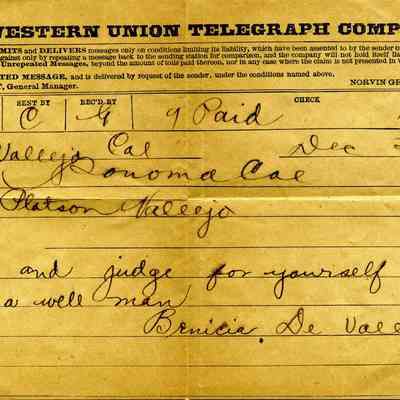 WESTERN UNION TELEGRAPH COMP
MITS and DELIVERS messages only on conditions limiting its liability, which have been assented to by the sender
against only by repeating a message back to the sending station for comparison, and the company will not hold itself
Unrepeated Messages, beyond the amount of tolls paid thereon, nor in any case where the claim is not presented in
TED MESSAGE, and is delivered by request of the sender, under the conditions named above.
T, General Manager. NORVIN GR
SENT BY REC'D BY CHECK
C G 9 Paid
Vallejo Cal Dec
Sonoma Cal
Platson Vallejo
and judge for yourself
a well man
Benicia De Valle